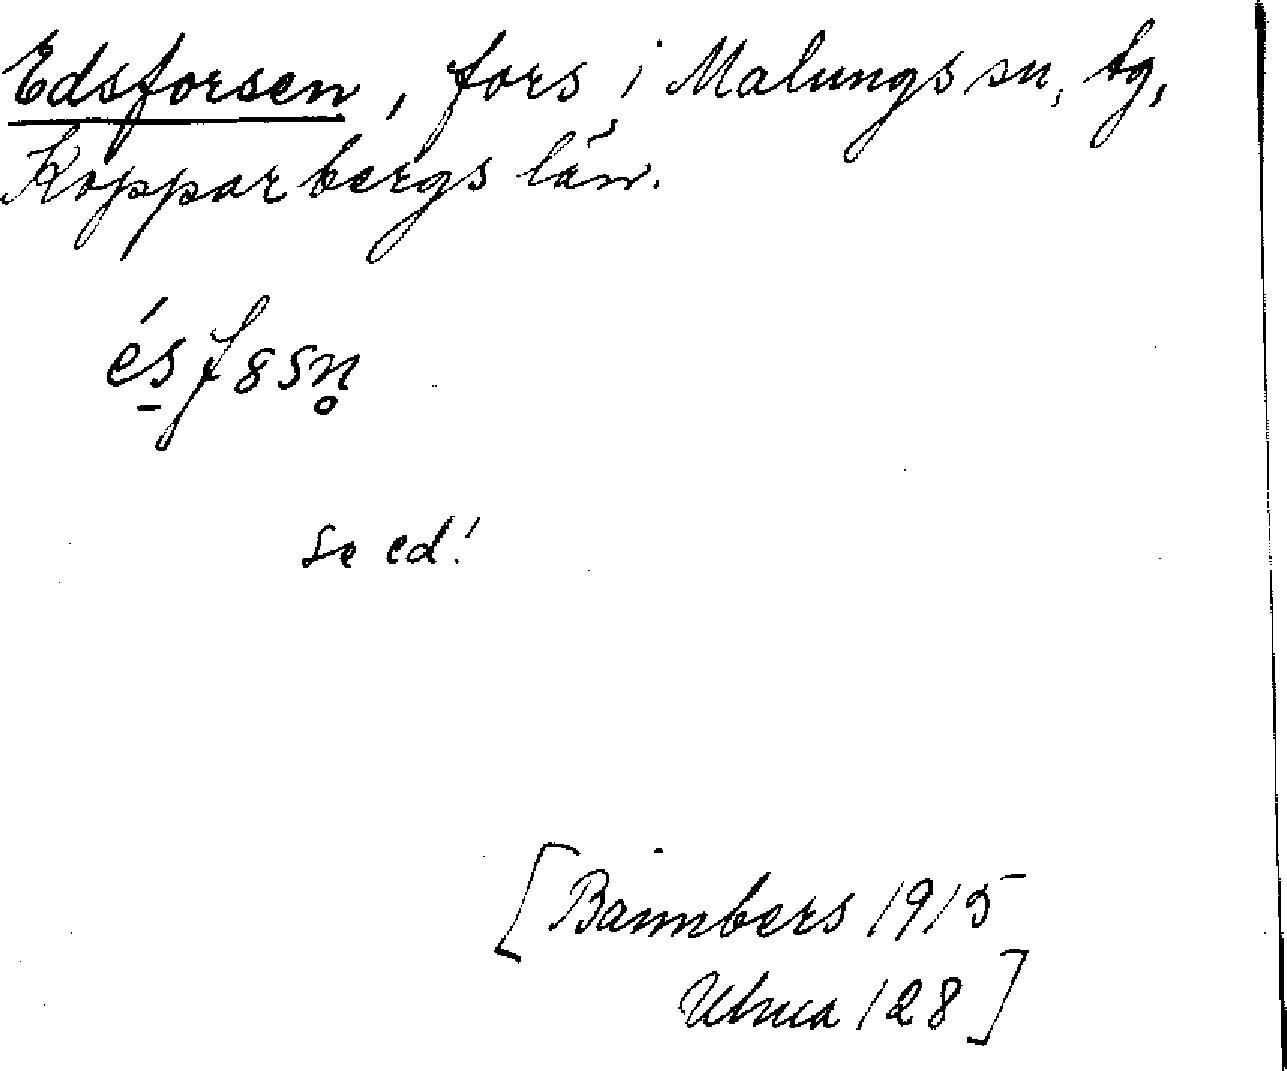 Edsforsen, fors i Malungs sn, tg,
Kopparbergs län.
és̠f8sn̥
Se ed!
[Bannbers 1915
128]